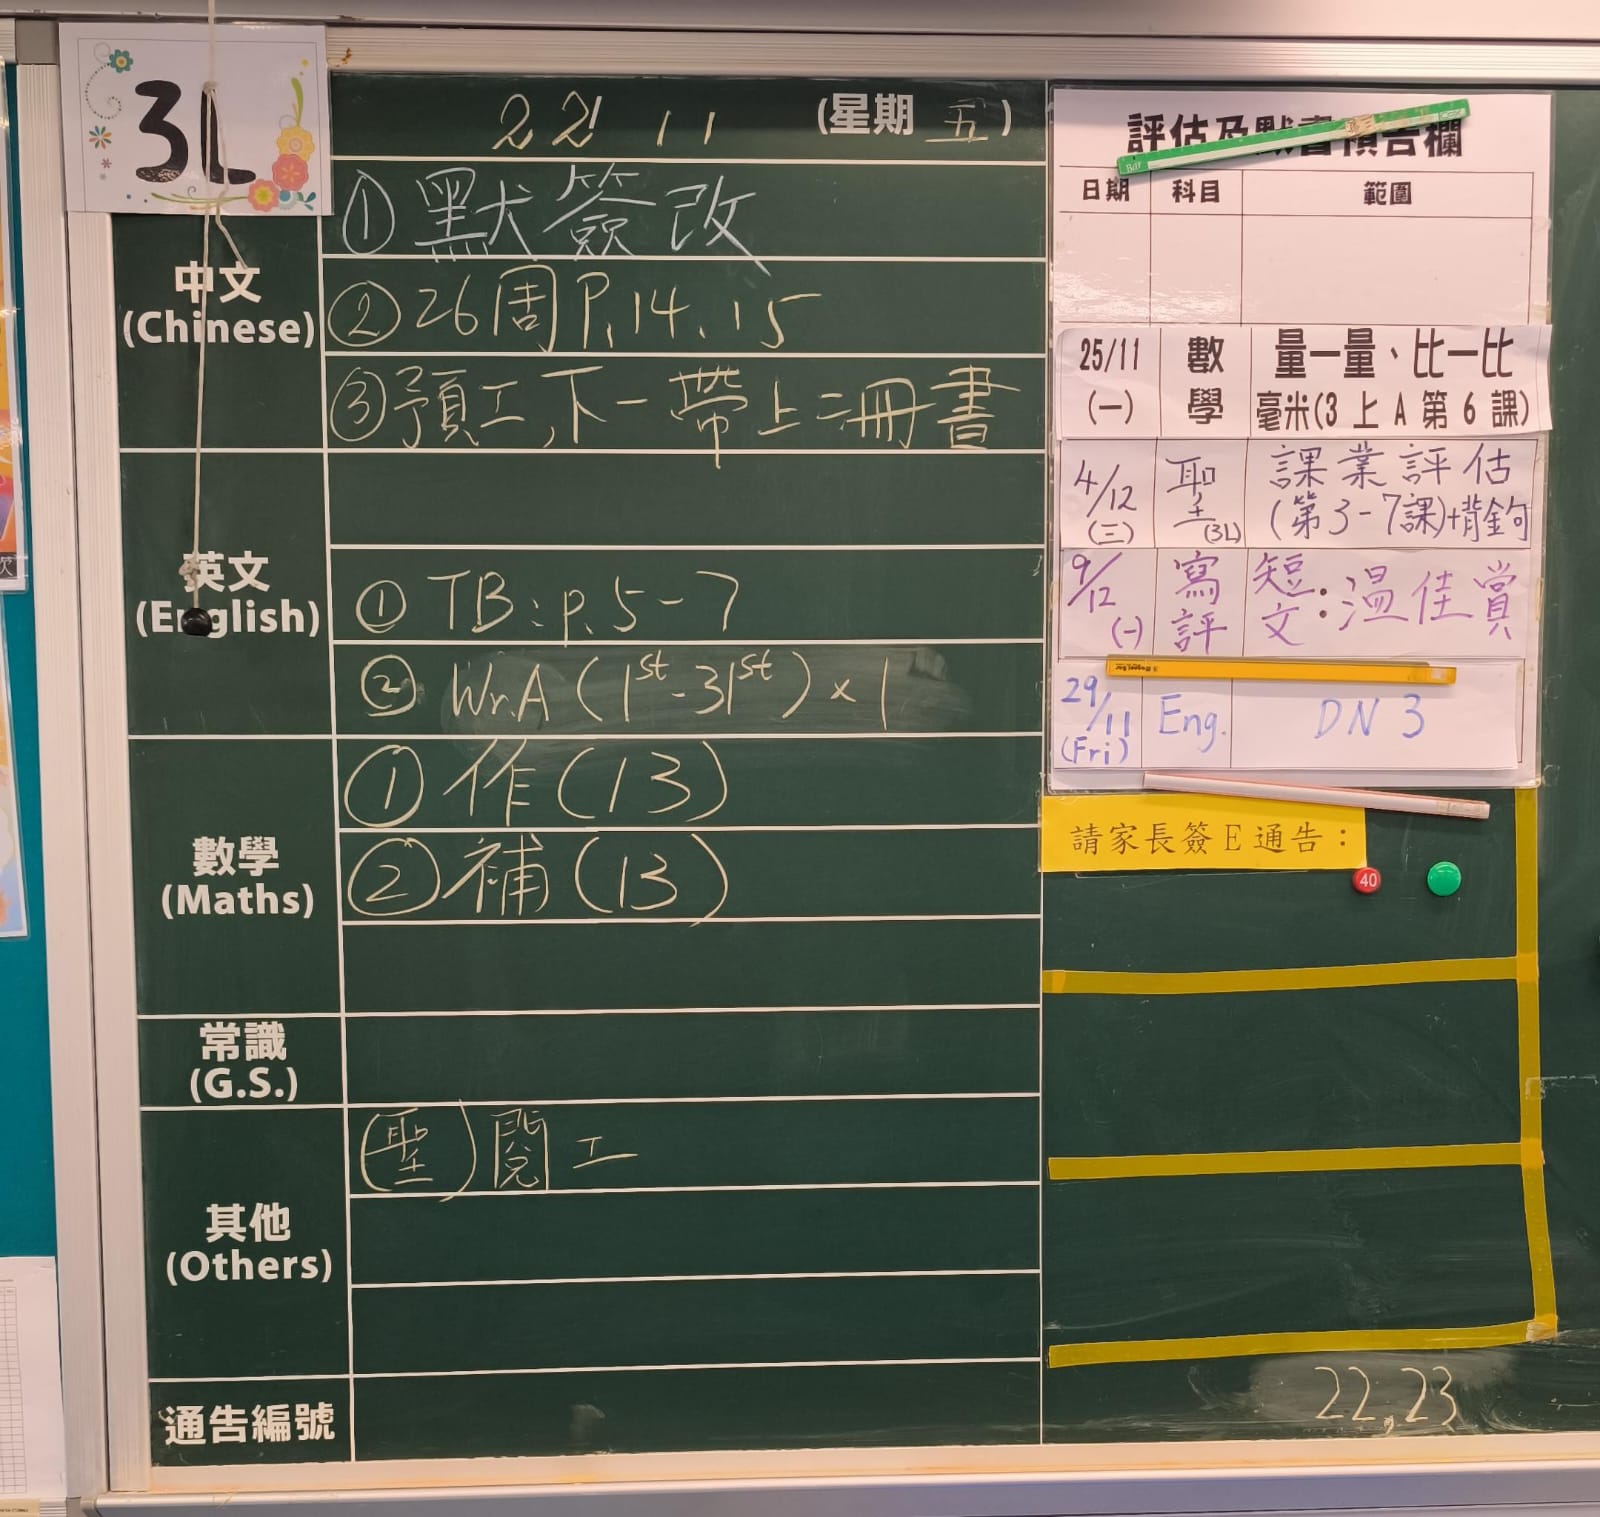 3L
22 11 (星期 五)
中文
(Chinese)
①默簽改
②26周P.14、15
③預工,下一帶上二冊書
英文
(English)
① TB: p.5-7
② Wr.A (1st-31st) × 1
數學
(Maths)
①作(13)
②補(13)
常識
(G.S.)
其他
(Others)
(聖)閱工
通告編號
評估及默書預告欄
日期 科目 範圍
25/11 (一) 數學 量一量、比一比
毫米(3 上 A 第 6 課)
4/12 (三) 聖 (3L) 課業評估
(第3-7課)+背金句
9/12 (一) 寫評 短文:溫佳賞
29/11 (Fri) Eng. DN 3
請家長簽E通告:
40
22,23